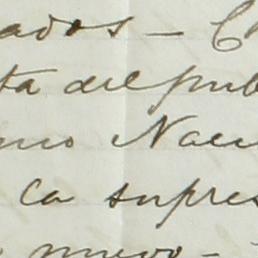 ados - C
ta del pub
no Nac
ca supres
nuevo -